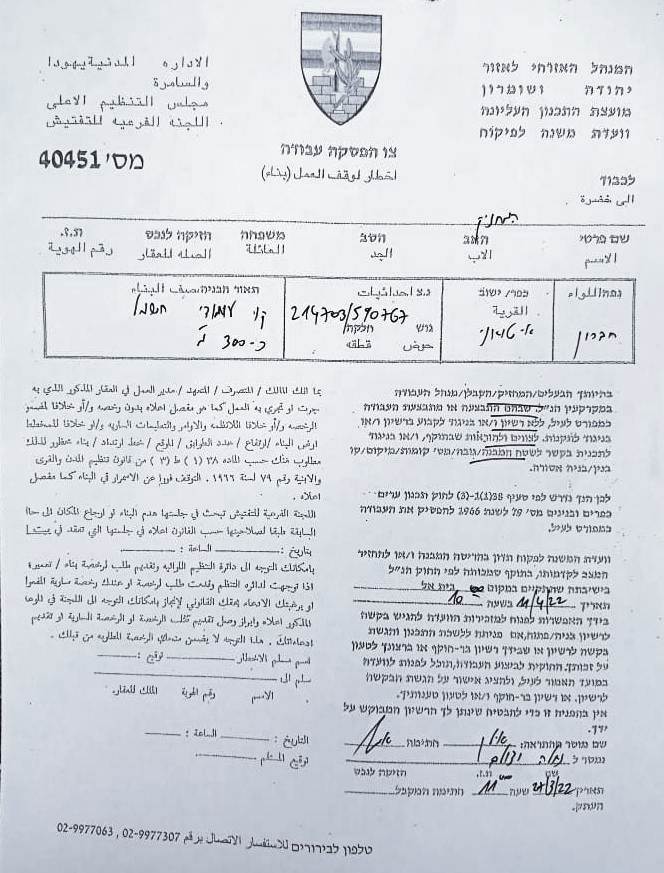 המנהל האזרחי לאזור
יהודה ושומרון
מועצת התכנון העליונה
וועדת משנה לפיקוח
الاداره المدنية يهودا
والسامرة
مجلس التنظيم الاعلى
اللجنة الفرعيه للتفتيش
צו הפסקה עבודה
اخطار لوقف العمل (بناء)
מס' 40451
לכבוד
الى حضرة
המחזיק
שם פרטי האב הסב משפחה הזיקה לנכס ת.ז.
الاسم الاب الجد العائلة الصله للعقار رقم الهوية
נפה/اللواء כפר/ ישוב נ.צ احداثيات תאור הבניה/صيف البناء
القرية
חברון א-טוואני 214703/590767 קו עמודי חשמל
גוש חלקה/ כ-300 מ'
حوض قطقه
בהיותך הבעלים/המחזיק/הקבלן/מנהל העבודה
במקרקעין הנ"ל, שבהם התבצעה או מתבצעת העבודה
כמפורט לעיל, ללא רשיון ו/או בניגוד לקבוע ברשיון ו/או
בניגוד לתקנות, לצווים ולהוראות שבתוקף, ו/או בניגוד
לתכנית בקשר לשטח המבנה/גובה/מס' קומות/מיקום/קו
בנין/בניה אסורה.
לכן הנך נדרש לפי סעיף 38(1)(ג)-(3) לחוק תכנון ערים
כפרים ובנינים מס' 79 לשנת 1966 להפסיק את העבודה
כמפורט לעיל.
וועדת המשנה לפקוח תדון בהריסת המבנה ו/או להחזיר
המצב לקדמותו, בתוקף סמכותה לפי החוק הנ"ל
בישיבתה שתקיים במקום בית אל
תאריך 11/4/22 בשעה 10
בידך האפשרות לפנות למזכירות הוועדה להגיש בקשה
לרשיון בניה/פתוח, אם פנית ללשכת התכנון והגשת
בקשה לרשיון או שבידך רשיון בר-תוקף או ברצונך לטעון
על זכותך. החוקית לביצוע העבודה, תוכל לפנות לוועדה
במועד האמור לעיל, ולהציג אישור על הגשת הבקשה
לרשיון. או רשיון בר-תוקף ו/או לטעון טענותיך.
אין בהפניה זו כדי להבטיח שינתן לך הרשיון המבוקש על
ידך.
שם מוסר ההתראה: חתימה
נמסר ל
שם ת.ז. הזיקה לנכס
תאריך 27/3/22 שעה 11 חתימת המקבל
העתק.
بما انك المالك / المتصرف / المتعهد / مدير العمل في العقار المذكور الذي به
جرت او تجري به العمل كما هو مفصل اعلاه بدون رخصه و/أو خلافا
الرخصه و/أو خلافا للانظمه والاوامر والتعليمات السارية و/أو خلافا للمخطط
ارض البناء /ارتفاع / عدد الطوابق / الموقع / خط ارتداد / بناء محظور لذلك
مطلوب منك حسب المادة ٣٨ (١) ط (٣) من قانون تنظيم المدن والقرى
والابنية رقم ٧٩ لسنة ١٩٦٦ . التوقف فورا عن الاستمرار في البناء كما مفصل
اعلاه .
اللجنة الفرعية للتفتيش تبحث في جلستها هدم البناء او ارجاع المكان الى
السابقة طبقا لصلاحيتها حسب القانون اعلاه في جلستها التي تنعقد في
بتاريخ: الساعة :
بامكانك التوجه الى دائرة التنظيم اللوائيه وتقديم طلب لرخصة بناء / تعمير
اذا توجهت لدائره التنظم وقدمت طلب لرخصة او عندك رخصة سارية
او برغبتك الادعاء بحقك القانوني لإنجاز بامكانك التوجه الى اللجنة في
المذكور اعلاه وابراز وصل تقديم طلب الرخصة او الرخصة السارية او تقديم
ادعاءاتك . هذا التوجه لا يضمن منحك الرخصة المطلوبه من قبلك .
اسم مسلم الاخطار توقيع :
سلم الى
الاسم رقم الهوية المالك للعقار.
التاريخ : الساعة :
توقيع المستلم
טלפון לבירורים للاستفسار الاتصال برقم 02-9977307 , 02-9977063